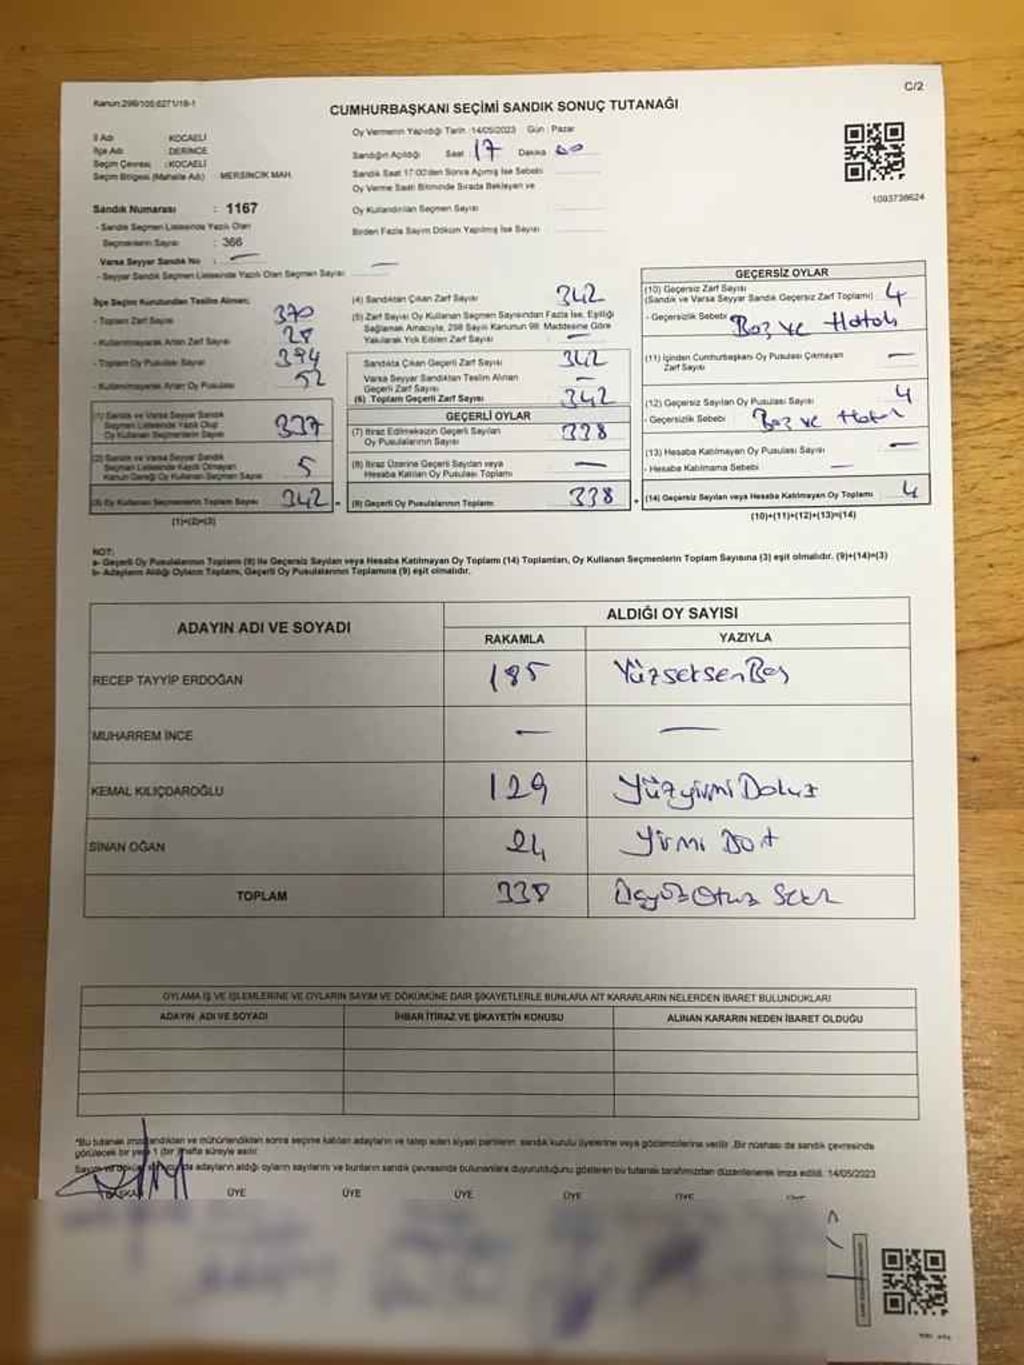 Kanun:298/105,6271/18-1
C/2
CUMHURBAŞKANI SEÇİMİ SANDIK SONUÇ TUTANAĞI
İl Adı KOCAELİ
İlçe Adı DERİNCE
Seçim Çevresi : KOCAELİ
Seçim Bölgesi (Mahalle Adı) MERSİNCİK MAH.
Sandık Numarası : 1167
- Sandık Seçmen Listesinde Yazılı Olan
Seçmenlerin Sayısı : 366
Varsa Seyyar Sandık No : —
- Seyyar Sandık Seçmen Listesinde Yazılı Olan Seçmen Sayısı —
Oy Vermenin Yapıldığı Tarih :14/05/2023 Gün : Pazar
Sandığın Açıldığı Saat 17 Dakika 00
Sandık Saat 17:00'den Sonra Açılmış İse Sebebi
Oy Verme Saati Bitiminde Sırada Bekleyen ve
Oy Kullandırılan Seçmen Sayısı
Birden Fazla Sayım Döküm Yapılmış İse Sayısı
1093738624
İlçe Seçim Kurulundan Teslim Alınan;
- Toplam Zarf Sayısı 370
- Kullanılmayarak Artan Zarf Sayısı 28
- Toplam Oy Pusulası Sayısı 394
- Kullanılmayarak Artan Oy Pusulası 52
(1) Sandık ve Varsa Seyyar Sandık
Seçmen Listesinde Yazılı Olup
Oy Kullanan Seçmenlerin Sayısı 337
(2) Sandık Seçmen
Listesinde Kayıtlı Olmayan
Kanun Gereği Oy Kullanan Seçmen Sayısı 5
(3) Oy Kullanan Seçmenlerin Toplam Sayısı 342
(1)+(2)=(3)
(4) Sandıktan Çıkan Zarf Sayısı 342
(5) Zarf Sayısı Oy Kullanan Seçmen Sayısından Fazla İse, Eşitliği
Sağlamak Amacıyla, 298 Sayılı Kanunun 98. Maddesine Göre
Yakılarak Yok Edilen Zarf Sayısı —
Sandıkta Çıkan Geçerli Zarf Sayısı 342
Varsa Seyyar Sandıktan Teslim Alınan
Geçerli Zarf Sayısı —
(6) Toplam Geçerli Zarf Sayısı 342
GEÇERLİ OYLAR
(7) İtiraz Edilmeksizin Geçerli Sayılan
Oy Pusulalarının Sayısı 338
(8) İtiraz Üzerine Geçerli Sayılan veya
Hesaba Katılan Oy Pusulası Toplamı —
(9) Geçerli Oy Pusulalarının Toplamı 338
GEÇERSİZ OYLAR
(10) Geçersiz Zarf Sayısı
(Sandık ve Varsa Seyyar Sandık Geçersiz Zarf Toplamı) 4
- Geçersizlik Sebebi Boş ve Hatalı
(11) İçinden Cumhurbaşkanı Oy Pusulası Çıkmayan
Zarf Sayısı —
(12) Geçersiz Sayılan Oy Pusulası Sayısı 4
- Geçersizlik Sebebi Boş ve Hatalı
(13) Hesaba Katılmayan Oy Pusulası Sayısı —
- Hesaba Katılmama Sebebi —
(14) Geçersiz Sayılan veya Hesaba Katılmayan Oy Toplamı 4
(10)+(11)+(12)+(13)=(14)
NOT:
a- Geçerli Oy Pusulalarının Toplamı (9) ile Geçersiz Sayılan veya Hesaba Katılmayan Oy Toplamı (14) Toplamları, Oy Kullanan Seçmenlerin Toplam Sayısına (3) eşit olmalıdır. (9)+(14)=(3)
b- Adayların Aldığı Oyların Toplamı, Geçerli Oy Pusulalarının Toplamına (9) eşit olmalıdır.
ADAYIN ADI VE SOYADI
ALDIĞI OY SAYISI
RAKAMLA YAZIYLA
RECEP TAYYİP ERDOĞAN 185 YüzseksenBeş
MUHARREM İNCE — —
KEMAL KILIÇDAROĞLU 129 Yüzyirmi Dokuz
SİNAN OĞAN 24 Yirmi Dört
TOPLAM 338 ÜçyüzOtuz Sekiz
OYLAMA İŞ VE İŞLEMLERİNE VE OYLARIN SAYIM VE DÖKÜMÜNE DAİR ŞİKAYETLERLE BUNLARA AİT KARARLARIN NELERDEN İBARET BULUNDUKLARI
ADAYIN ADI VE SOYADI İHBAR İTİRAZ VE ŞİKAYETİN KONUSU ALINAN KARARIN NEDEN İBARET OLDUĞU
*Bu tutanak imzalandıktan ve mühürlendikten sonra seçime katılan adayların ve talep eden siyasi partilerin sandık kurulu üyelerine veya gözlemcilerine verilir. Bir nüshası da sandık çevresinde
görülecek bir yere 1 (bir) hafta süreyle asılır.
adayların aldığı oyların sayılarını ve bunların sandık çevresinde bulunanlara duyurulduğunu gösteren bu tutanak tarafımızdan düzenlenerek imza edildi. 14/05/2023
ÜYE ÜYE ÜYE ÜYE ÜYE ÜYE